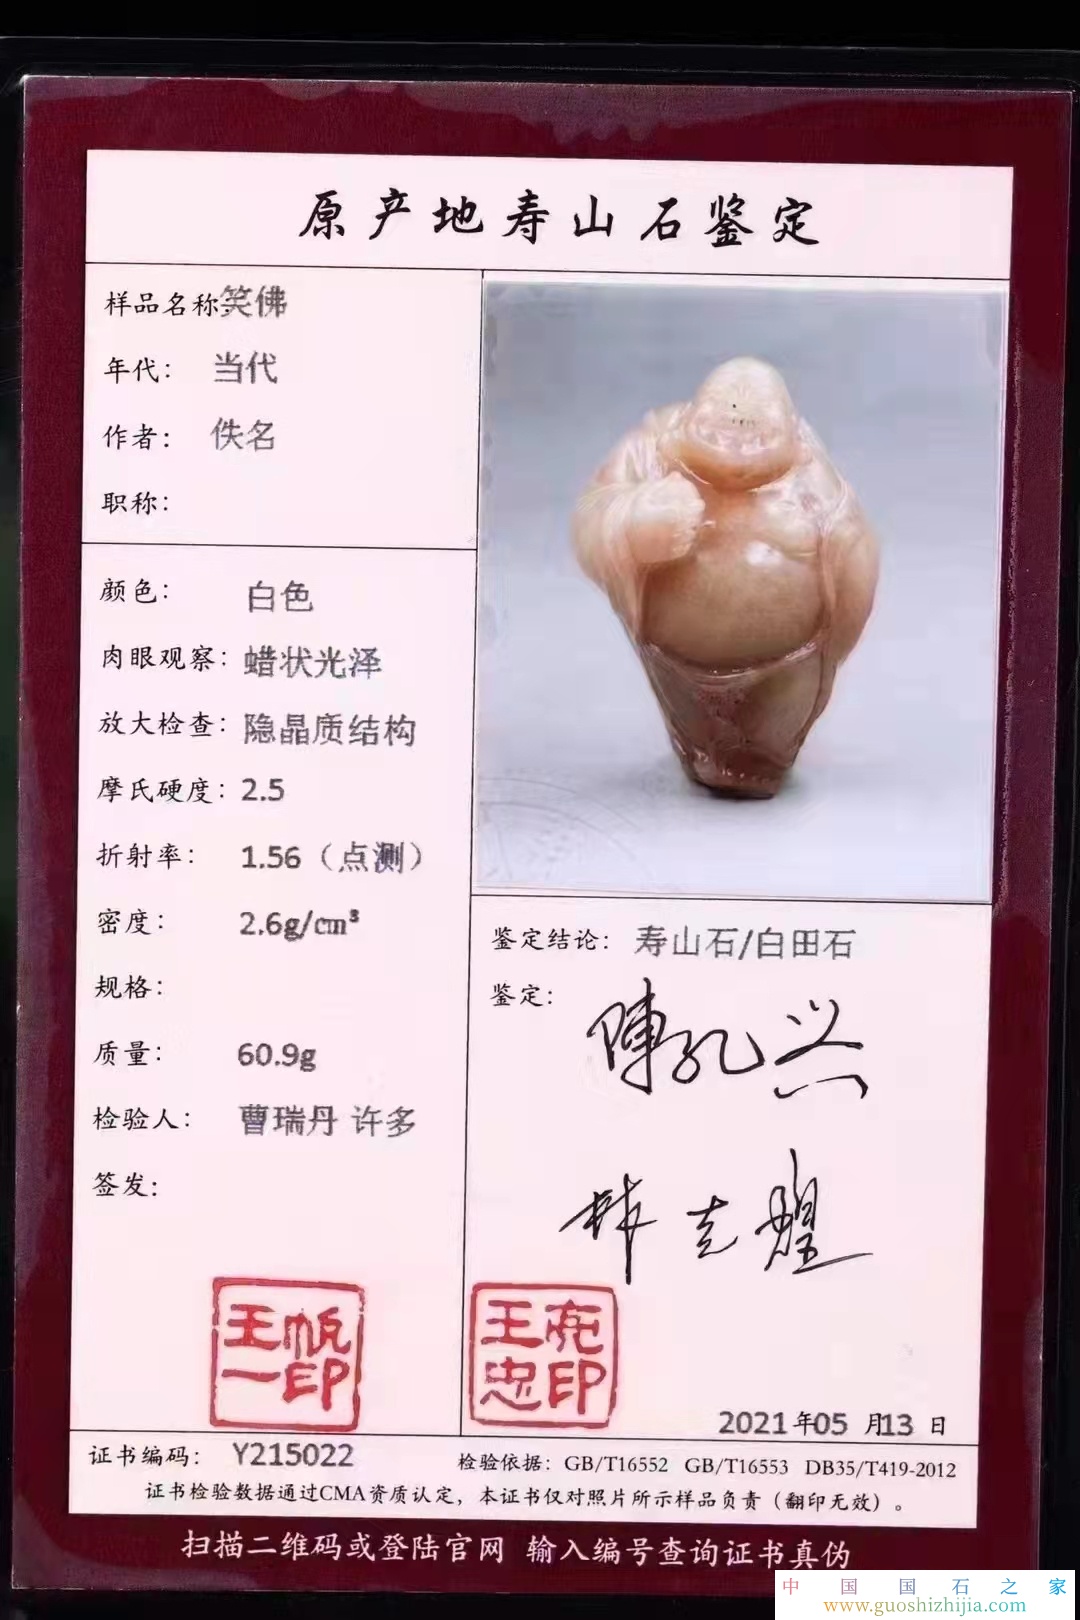 原产地寿山石鉴定
样品名称:笑佛
年代: 当代
作者: 佚名
职称:
颜色: 白色
肉眼观察: 蜡状光泽
放大检查: 隐晶质结构
摩氏硬度: 2.5
折射率: 1.56（点测）
密度: 2.6g/cm³
规格:
质量: 60.9g
检验人: 曹瑞丹 许多
签发:
王帆
一印
鉴定结论: 寿山石/白田石
鉴定:
王亮
忠印
2021年05月13日
证书编码: Y215022
检验依据: GB/T16552 GB/T16553 DB35/T419-2012
证书检验数据通过CMA资质认定，本证书仅对照片所示样品负责（翻印无效）。
扫描二维码或登陆官网 输入编号查询证书真伪
中国国石之家
www.guoshizhijia.com